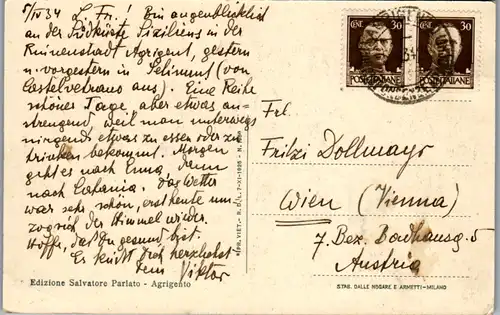 5/IV 34 L. Fri! Bin augenblicklich
an der Südküste Siziliens in der
Ruinenstadt Agrigent, gestern
u. vorgestern in Selinunt (von
Castelvetrano aus). Eine Reihe
schöner Tage, aber etwas an-
strengend, weil man unterwegs
nirgends etwas zu essen oder zu
trinken bekommt. Morgen
geht es nach Enna, dann
nach Catania. Das Wetter
war sehr schön, erst heute um
zog sich der Himmel wieder.
Hoffe, daß Du gesund bist.
Es küßt Dich herzlichst
Dein Viktor
Edizione Salvatore Parlato - Agrigento
30 30
POSTE ITALIANE
Frl.
Fritzi Dollmayr
Wien (Vienna)
7. Bez. Bandhausg. 5
Austria
STAB. DALLE NOGARE E ARMETTI - MILANO